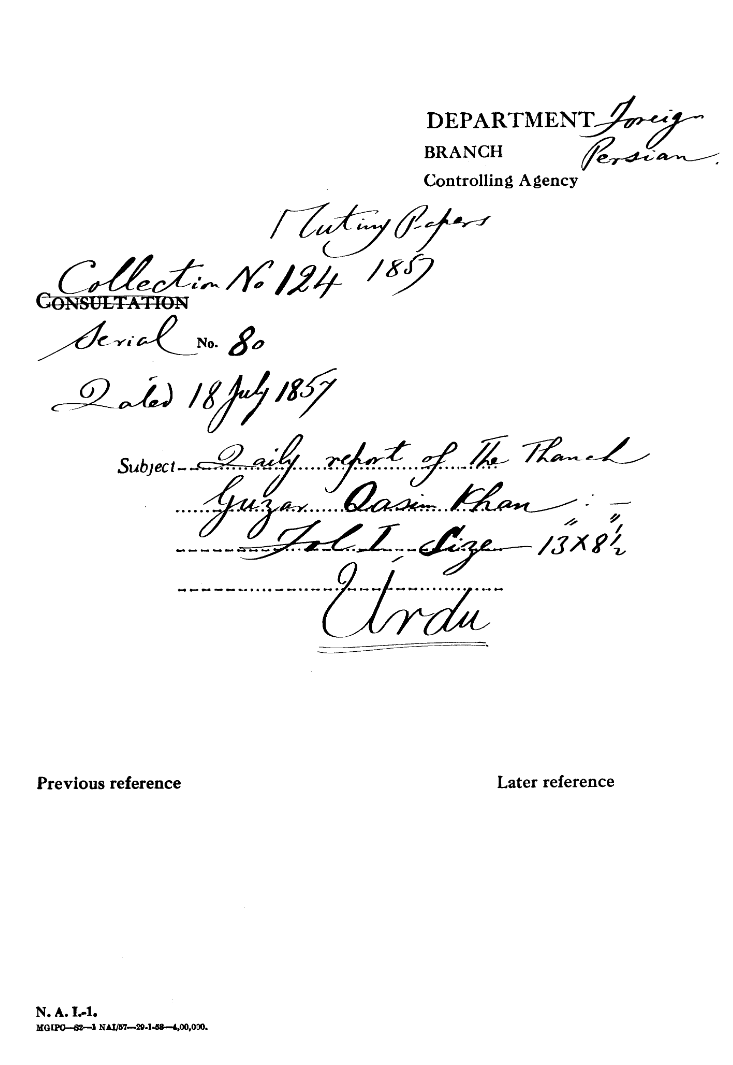 DEPARTMENT Foreign
BRANCH Persian.
Controlling Agency
Mutiny Papers
Collection No 124 1857
CONSULTATION
Serial No. 80
Dated 18 July 1857
Subject Daily report of The Thanah
Guzar Qasim Khan :-
Fol I, Size 13" X 8½"
Urdu
Previous reference Later reference
N. A. I.-1.
MGIPC—S2—1 NAI/57—29-1-58—4,00,000.